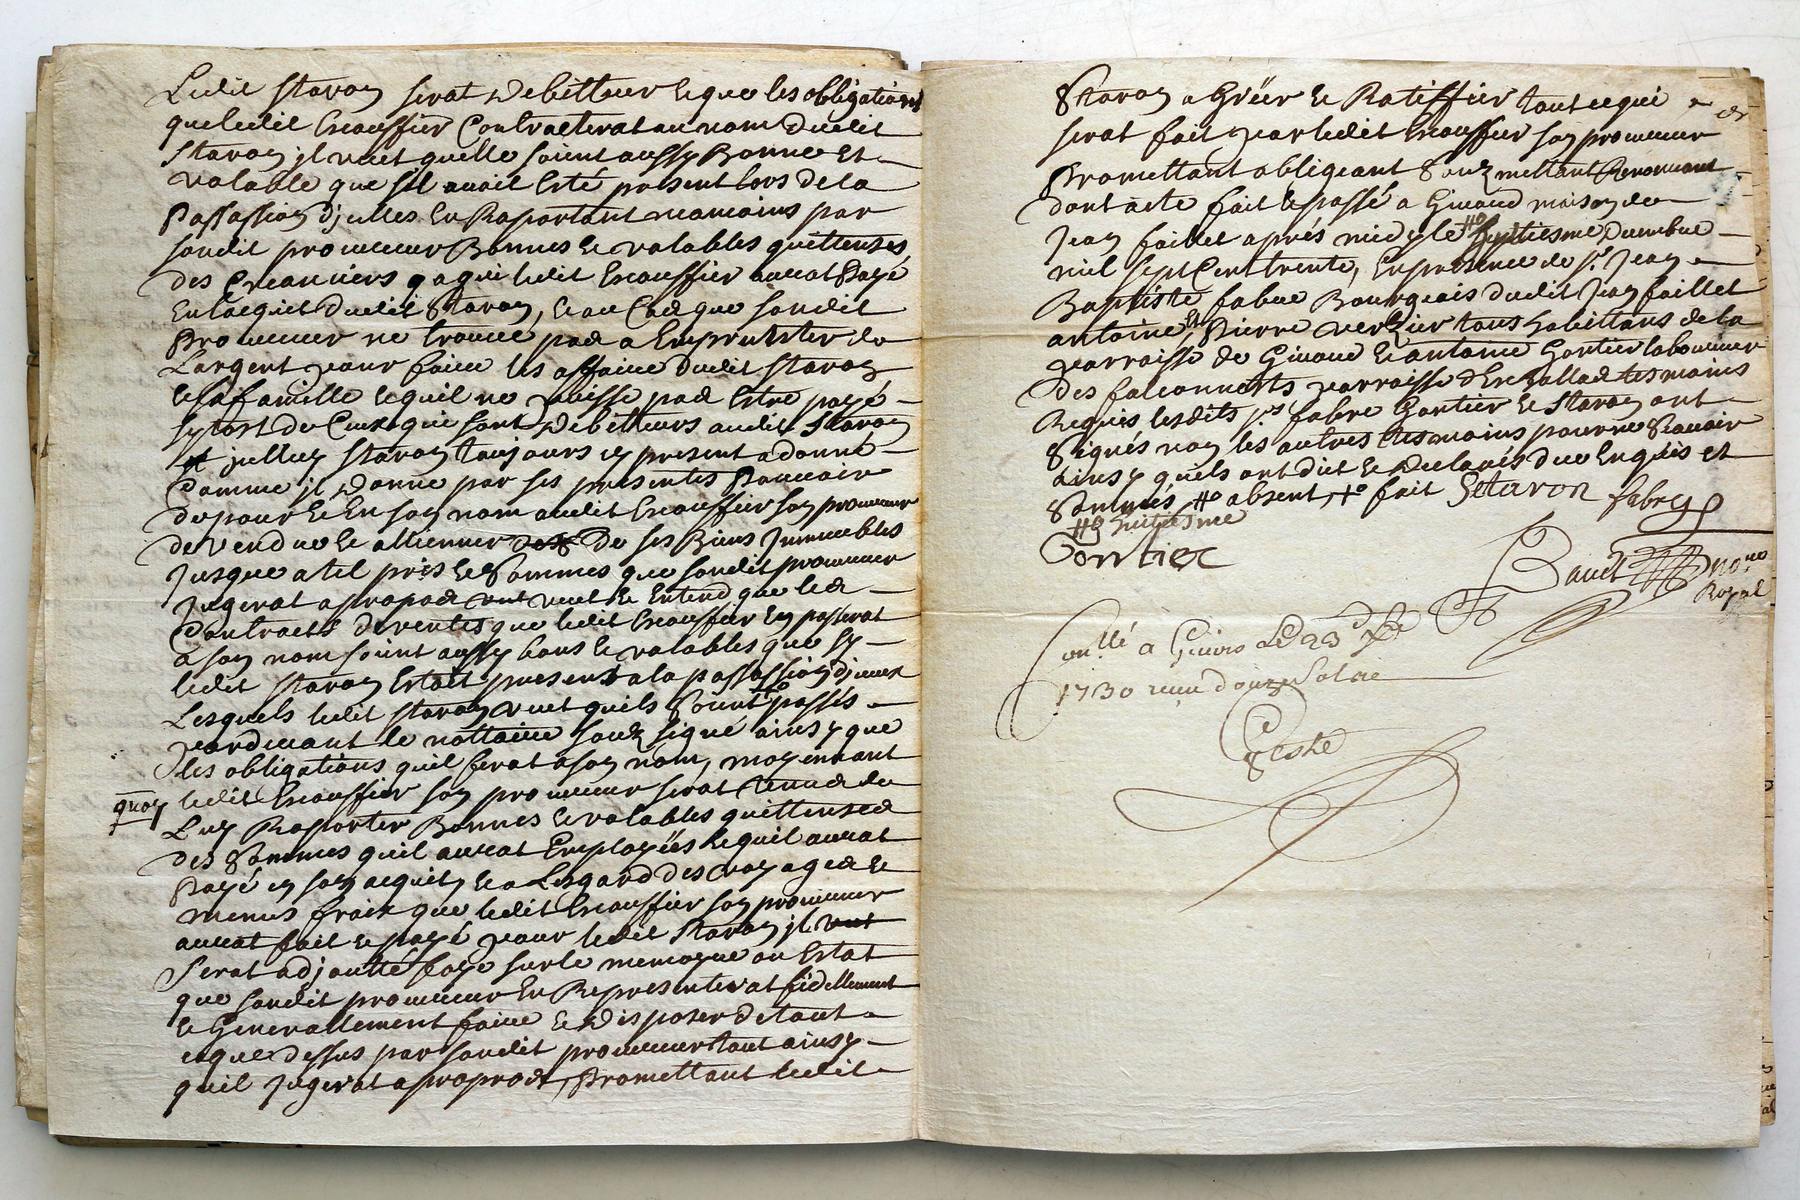 Ledit Staron serat Debitteur & que les obligations
que ledit Escouffier Contracterat au nom dudit
Staron jl veut quelle soient aussy Bonne et
valable que sil avoit Esté present lors de la
Passassion d'jcelles En Raportant neamoins par
sondit procureur Bonnes & valables quittenses
des Creanciers a qui ledit Escouffier aurat Payé
En lacquit dudit Staron, & au Cas que sondit
Procureur ne trouve pas a Emprunter de
Largent pour faire les affaire dudit Staron
& sa famille & quil ne puisse pas Estre payé
sytost de Ceux qui sont Debitteurs audit Staron
jcelluy Staron toujours cy present a donné
Comme jl Donne par ses presentes Pouvoir
de pour & En son nom audit Escouffier son procureur
de vendre & allienner De ses Biens Jmmeubles
Jusque a tel pris & Sommes que sondit procureur
Jugerat a propos veut & Entend que les
Contracts de ventes que ledit Escouffier En passerat
a son nom soient aussy bons & valables que sy
ledit Staron Estoit present a la passassion d'jceux
Lesquels ledit Staron veut quils Soient +o passés
pardevant le nottaire souz signé ainsy que
les obligations quil ferat a son nom, moyennant
quoy ledit Escouffier son procureur serat tenus de
Luy Raporter Bonnes & valables quittenses
des Sommes quil aurat Employées & quil aurat
Payé en son acquit, & a Lesgard des voyages &
menus fraix que ledit Escouffier son procureur
aurat fait & payé pour ledit Staron jl
Serat adjoutté foye sur le memoyre ou Estat
que sondit procureur En Representerat fidellement
& Generallement faire & Disposer de tout
ce que dessus par sondit procureur tout ainsy
quil Jugerat a propos, Promettant ledit
Staron a Gréer & Ratiffier tout ce qui
serat fait par ledit Escouffier son procureur
Promettant obligeant Souzmettant Renonçant
dont acte fait & passé a Givord maison de
Jean faillet aprés midy le #o Septiesme
mil sept Cent trente, En presence de sr Jean
Baptiste fabre Bourgeois dudit Jean faillet
antoine Pierre verzier tous habittans de la
parroisse de Givord & antoine Gontier laboureur
des falconnets parroisse tesmoins
Requis lesdits srs fabre Gontier & Staron ont
Signés non les autres tesmoins pour ne Scavoir
ainsy quils ont dit & Declarés de ce Enquis et
Sommés #o absent, +o fait Staron fabre
#o huitiesme
Gontier
nore
Royal
Conllé a Givors Le 23e
1730 receu douze Sols